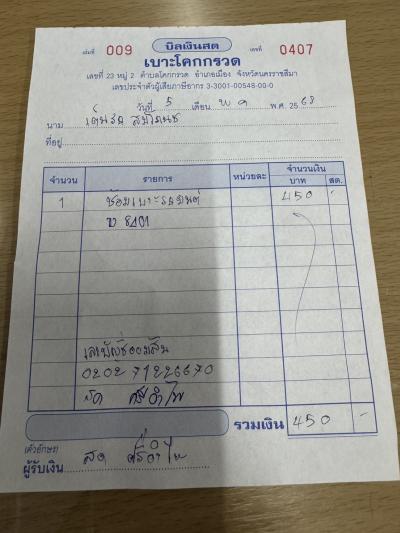 เล่มที่ 009 บิลเงินสด เลขที่ 0407
เบาะโคกกรวด
เลขที่ 23 หมู่ 2 ตำบลโคกกรวด อำเภอเมือง จังหวัดนครราชสีมา
เลขประจำตัวผู้เสียภาษีอากร 3-3001-00548-00-0
วันที่ 5 เดือน พ.ค พ.ศ. 2568
นาม
ที่อยู่
จำนวน รายการ หน่วยละ จำนวนเงิน
บาท สต.
1 ซ่อมเบาะรถยนต์ 450 -
8401
เลขบัญชีออมสิน
020271226670
รวมเงิน 450 -
(ตัวอักษร)
ผู้รับเงิน